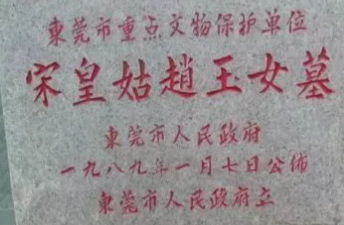 東莞市重点文物保护单位
宋皇姑趙王女墓
東莞市人民政府
一九八九年一月七日公佈
東莞市人民政府立